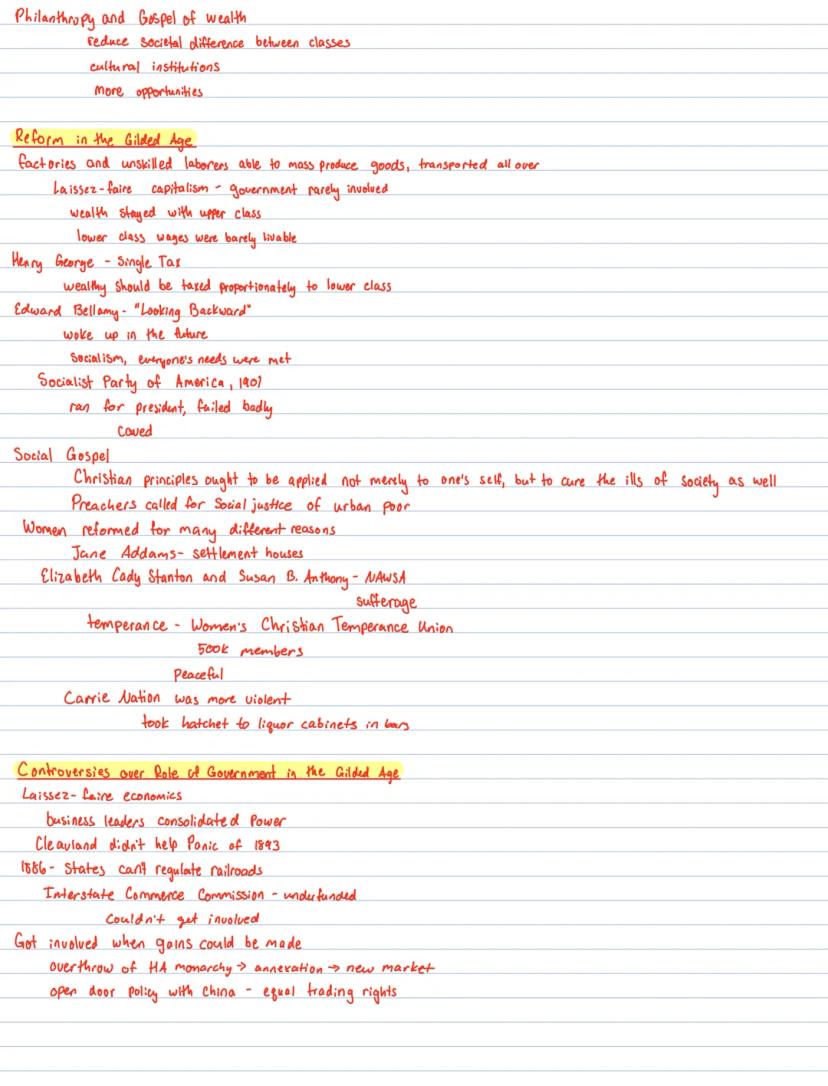 Philanthropy and Gospel of wealth
reduce societal difference between classes
cultural institutions
more opportunities
Reform in the Gilded Age
factories and unskilled laborers able to mass produce goods, transported all over
Laissez-faire capitalism - government rarely involved
wealth stayed with upper class
lower class wages were barely livable
Henry George - Single Tax
wealthy should be taxed proportionately to lower class
Edward Bellamy - "Looking Backward"
woke up in the future
Socialism, everyone's needs were met
Socialist Party of America, 1901
ran for president, failed badly
Caved
Social Gospel
Christian principles ought to be applied not merely to one's self, but to cure the ills of society as well
Preachers called for Social justice of urban poor
Women reformed for many different reasons
Jane Addams - settlement houses
Elizabeth Cady Stanton and Susan B. Anthony - NAWSA
sufferage
temperance - Women's Christian Temperance Union
500k members
Peaceful
Carrie Nation was more violent
took hatchet to liquor cabinets in bars
Controversies over Role of Government in the Gilded Age
Laissez-faire economics
business leaders consolidated Power
Cleavland didn't help Panic of 1893
1886 - States can't regulate railroads
Interstate Commerce Commission - undufunded
Couldn't get involved
Got involved when gains could be made
overthrow of HA monarchy → annexation → new market
open door policy with China - equal trading rights